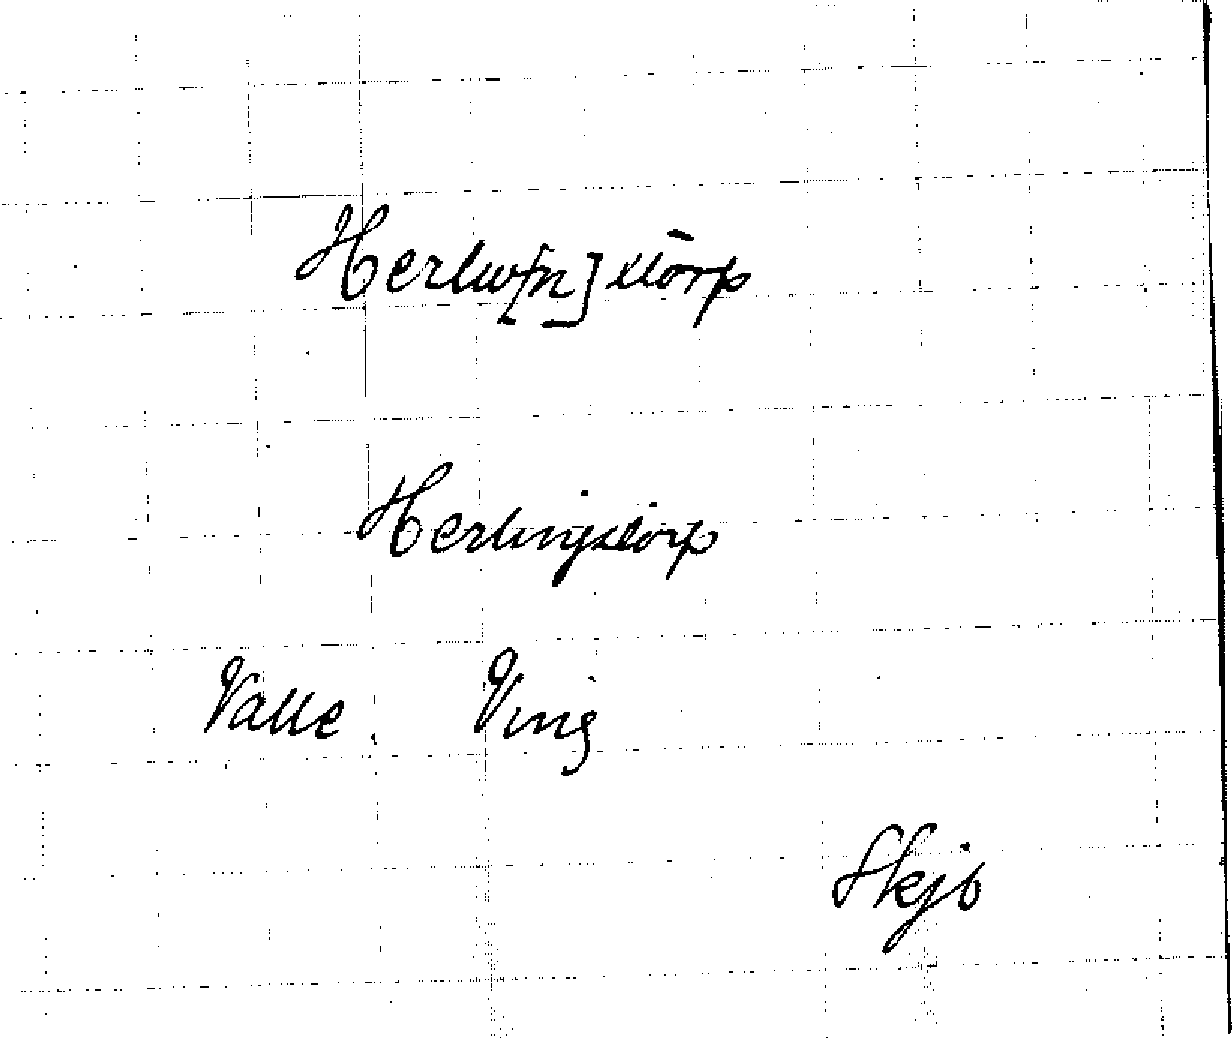 Herlw[n]störp
Herlingstorp
Valle. Ving
Skjb